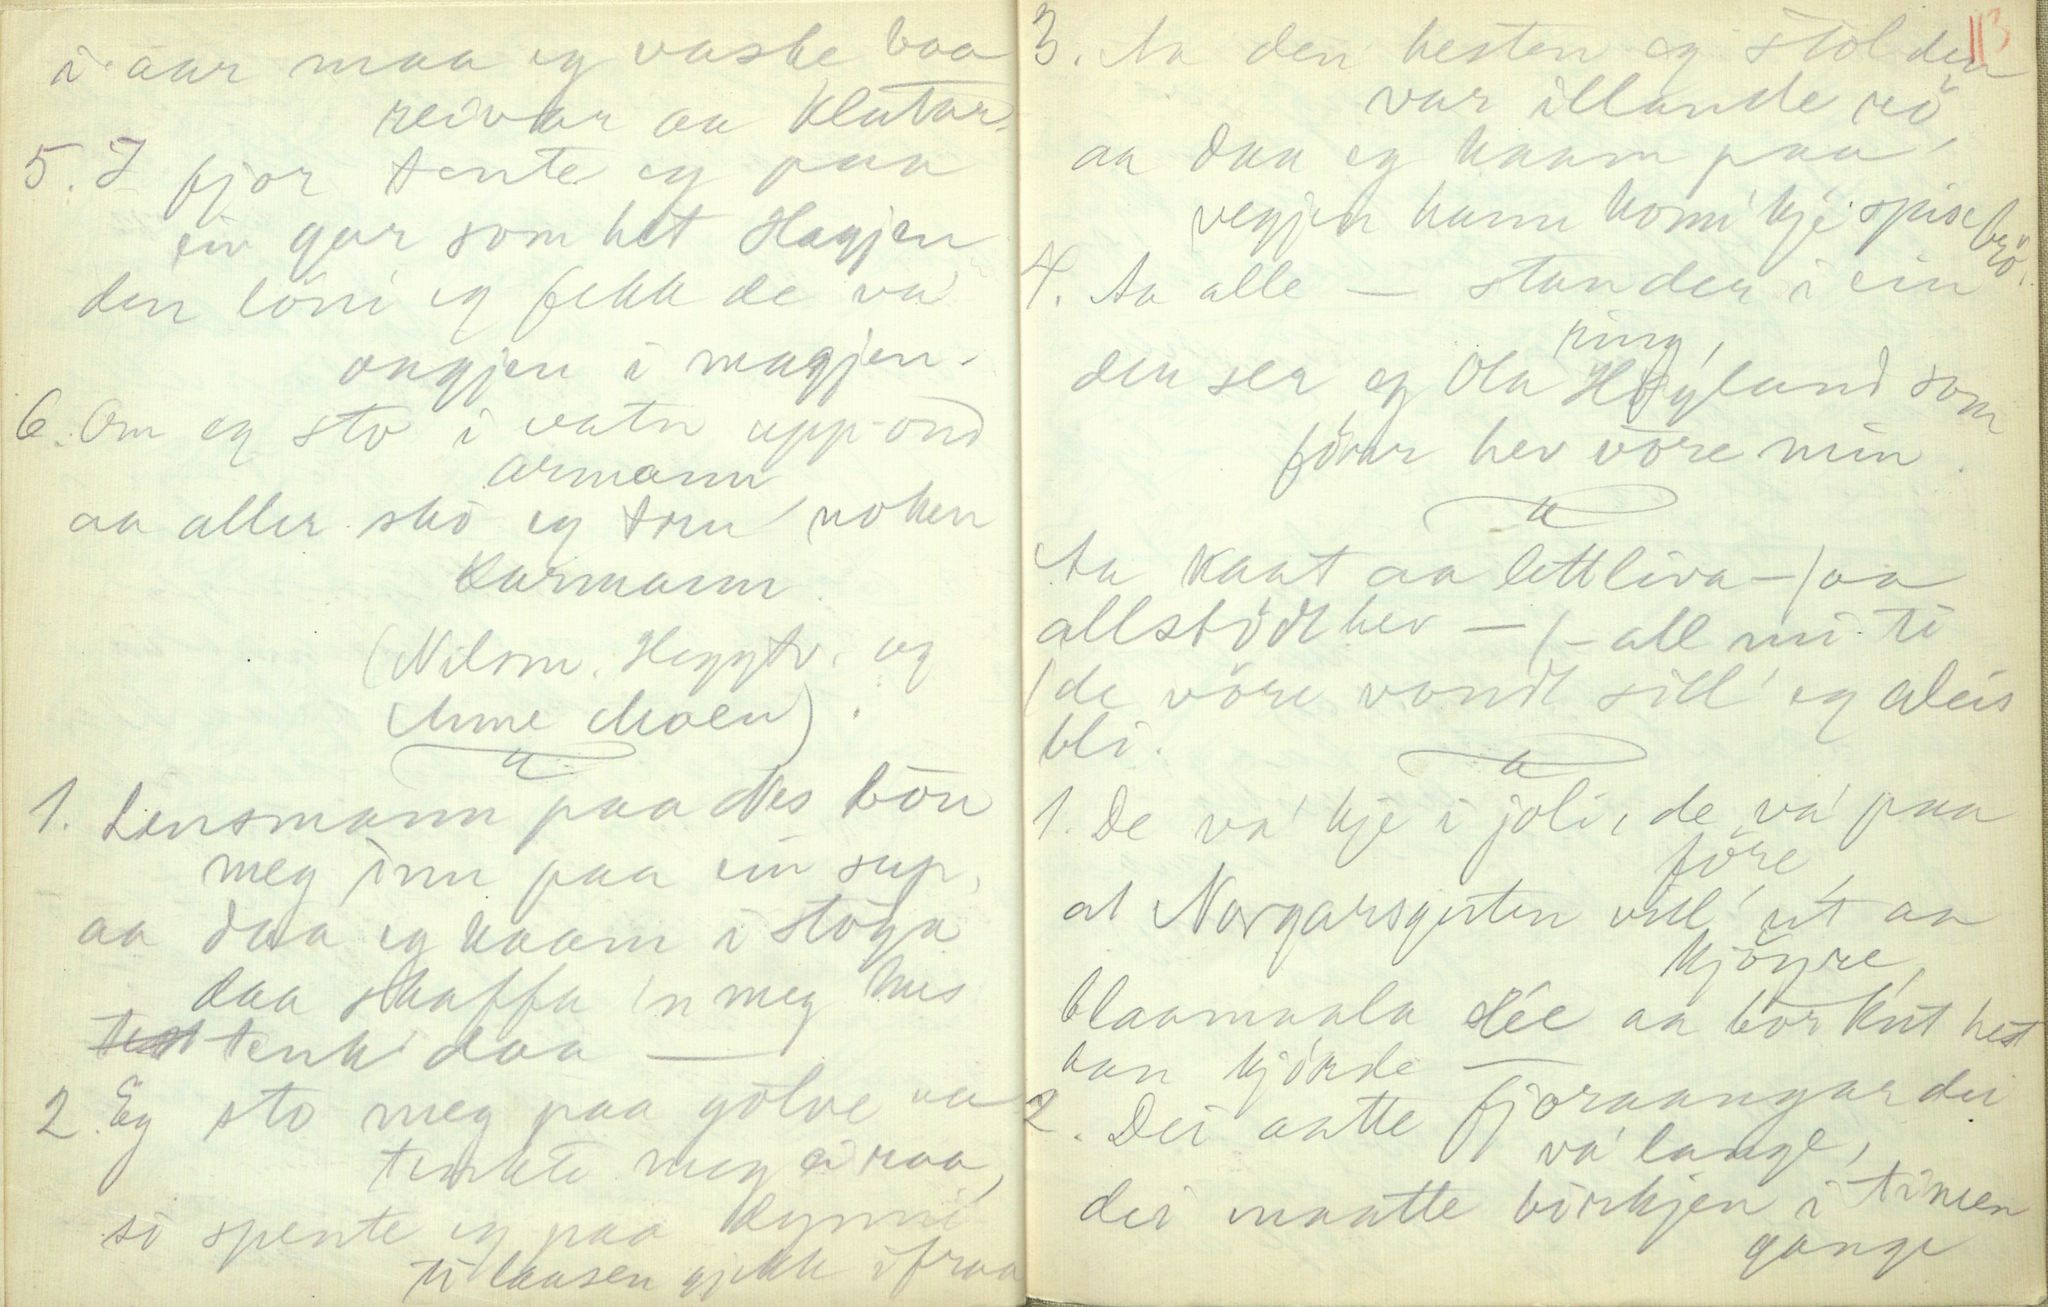 i aar maa eg vaske baa
reivar aa klutar.
5. I fjor tente eg paa
ein gar som het Hagjen
den löni eg fekk de va
ongjen i magjen.
6. Om eg sto i vatn upp-ond
armann
aa aller skö eg tru noken
karmann.
(Nilsm. Heggtv. og
Anne Moen).
1. Lensmann paa Nes bön
meg inn paa ein sup,
aa daa eg kaam i stöga
daa skaffa 'n meg hus
tenk daa —
2. Eg sto meg paa gölve aa
tenkte meg i raa,
so spente eg paa dynni
ti laasen gjekk ifraa
113
3. Aa den hesten eg stol den
var illande rö,
aa daa eg kaam paa
vegjen hann kom' kje spise
brö.
4. Aa alle — stander i ein
ring,
den ser eg Ola Höyland som
förar hev vöre min.
Aa kaat aa lettliva — / aa
allstödt hev — / — all mi ti
/ de vöre vondt sill' eg aleis
bli.
1. De va' kje i joli, de va' paa
före,
at Norgarsguten vill' ut aa
kjöyre,
blaamaala slée aa borkut hest
han kjörde —
2. Dei aatte fjoraangar dei
va' lange,
dei maatte birkjen i timen
gange